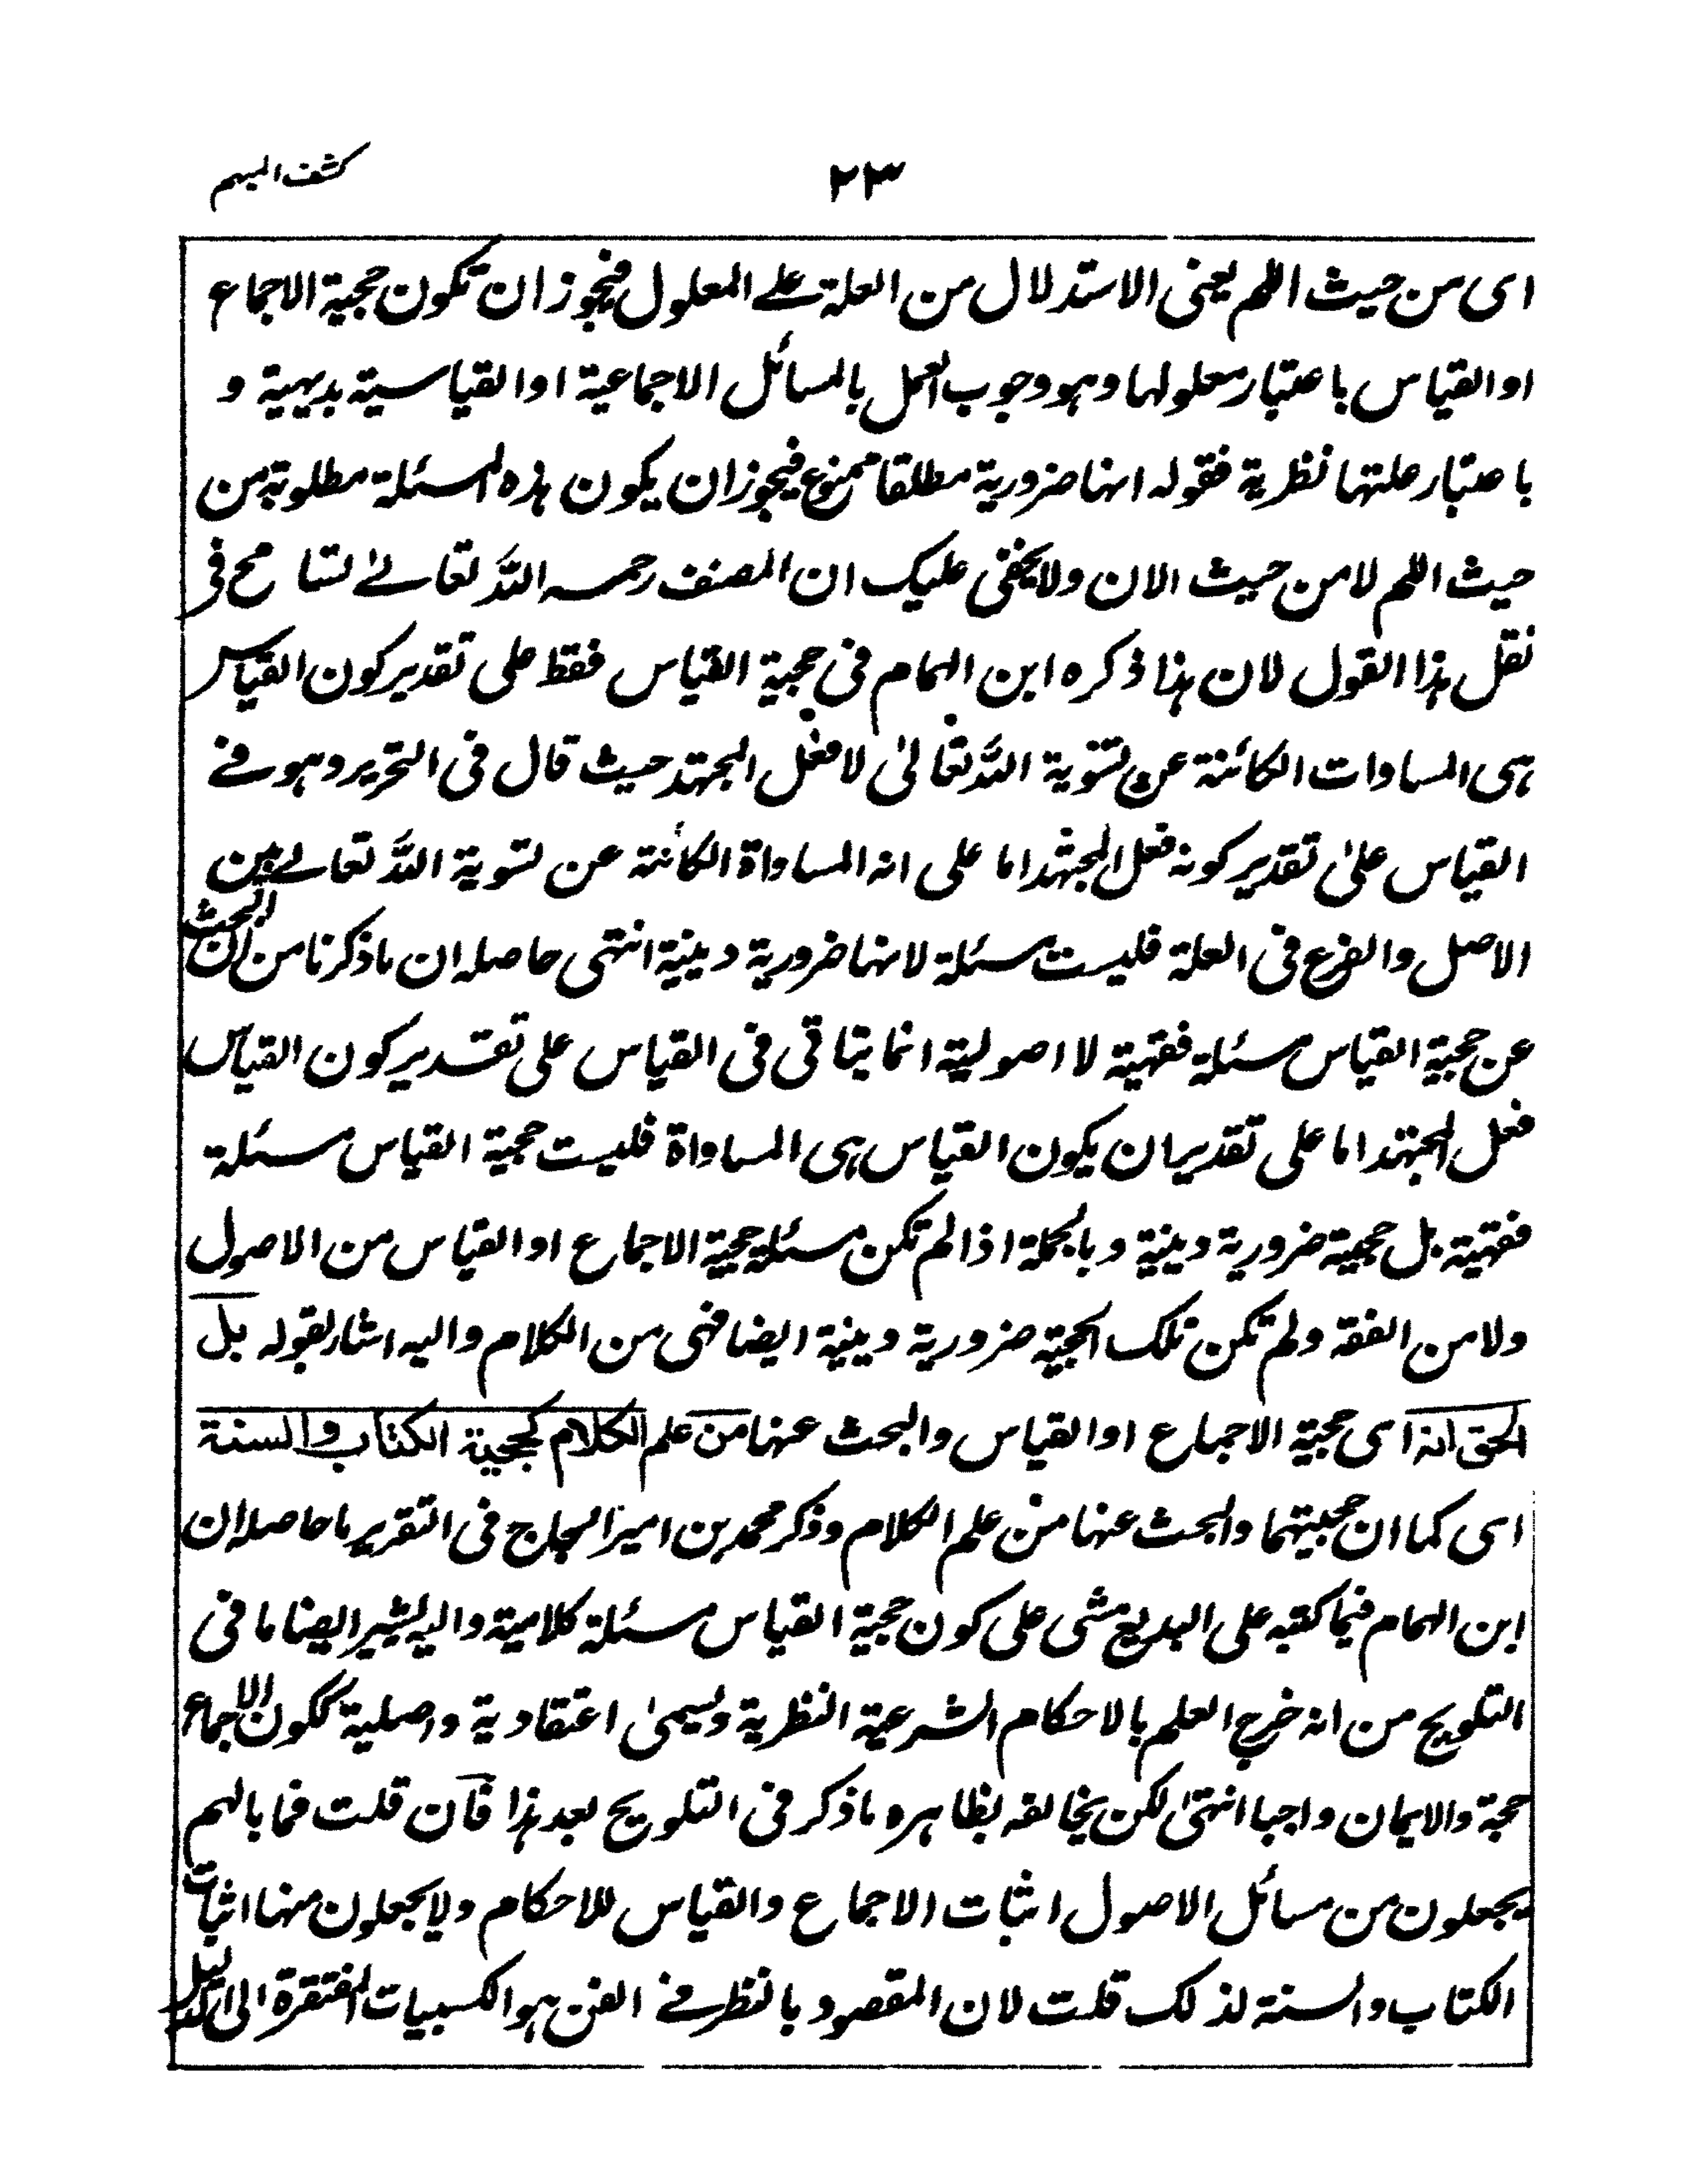 كشف المبهم
٢٣
اى من حيث اللم يعنى الاستدلال من العلة علے المعلول فيجوز ان تكون حجية الاجماع
او القياس باعتبار معلولها وہو وجوب العمل بالمسائل الاجماعية او القياسية بديہية و
باعتبار علتها نظرية فقوله انها ضرورية مطلقا ممنوع فيجوز ان يكون ہذه المسئلة مطلوبة من
حيث اللم لا من حيث الان ولا يخفى عليك ان المصنف رحمه اللہ تعالےٰ تسامح فى
نقل ہذا القول لان ہذا ذكره ابن الہمام فى حجية القياس فقط على تقدير كون القياس
ہى المساوات الكائنة عن تسوية اللہ تعالىٰ لا فعل المجتہد حيث قال فى التحرير وہو فے
القياس علىٰ تقدير كونه فعل المجتہد اما على انه المساواة الكائنة عن تسوية اللہ تعالے بين
الاصل والفرع فى العلة فليست مسئلة لانها ضرورية دينية انتهى حاصله ان ما ذكرنا من ان البحث
عن حجية القياس مسئلة فقهية لا اصولية انما يتاتى فى القياس على تقدير كون القياس
فعل المجتہد اما على تقدير ان يكون القياس ہى المساواة فليست حجية القياس مسئلة
فقهية بل حجية ضرورية دينية وبالجملة اذا لم تكن مسئلة حجية الاجماع او القياس من الاصول
ولا من الفقه ولم تكن تلك الحجية ضرورية دينية ايضا فهى من الكلام واليه اشار بقوله بل
الحق انه اى حجية الاجماع او القياس والبحث عنها من علم الكلام كحجية الكتاب والسنة
اى كما ان حجيتهما والبحث عنها من علم الكلام وذكر محمد بن امير الحاج فى التقرير ما حاصله ان
ابن الہمام فيما كتبه على البديع مشى على كون حجية القياس مسئلة كلامية واليه يشير ايضا ما فى
التلويح من انه خرج العلم بالاحكام الشرعية النظرية ويسمىٰ اعتقادية واصلية ككون الاجماع
حجة والايمان واجبا انتهىٰ لكن يخالفه بظاہره ما ذكر فى التلويح بعد ہذا فان قلت فما بالہم
يجعلون من مسائل الاصول اثبات الاجماع والقياس للاحكام ولا يجعلون منها اثبات
الكتاب والسنة لذلك قلت لان المقصود بالنظر فے الفن ہو الكسبيات المفتقرة الى الدليل